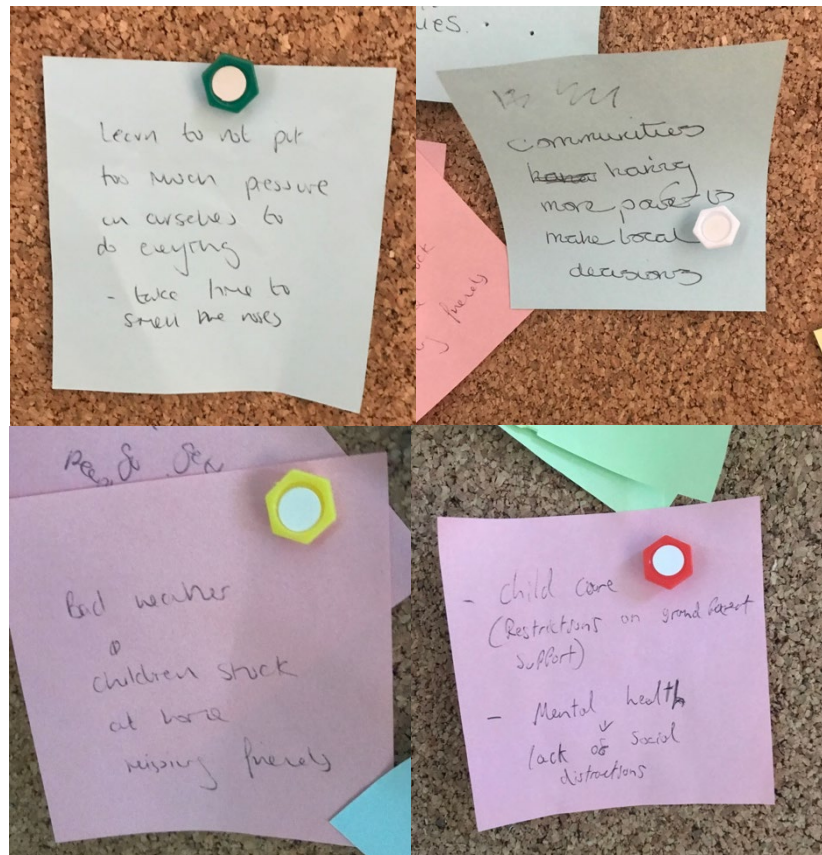 Learn to not put
too much pressure
on ourselves to
do everying
- take time to
smell the roses
ues..
communities
having
more power to
make local
decisions
ck
friends
Bad weather
children stuck
at home
missing friends
- Child care
(Restrictions on grand Parent
Support)
- Mental health
lack of social
distractions